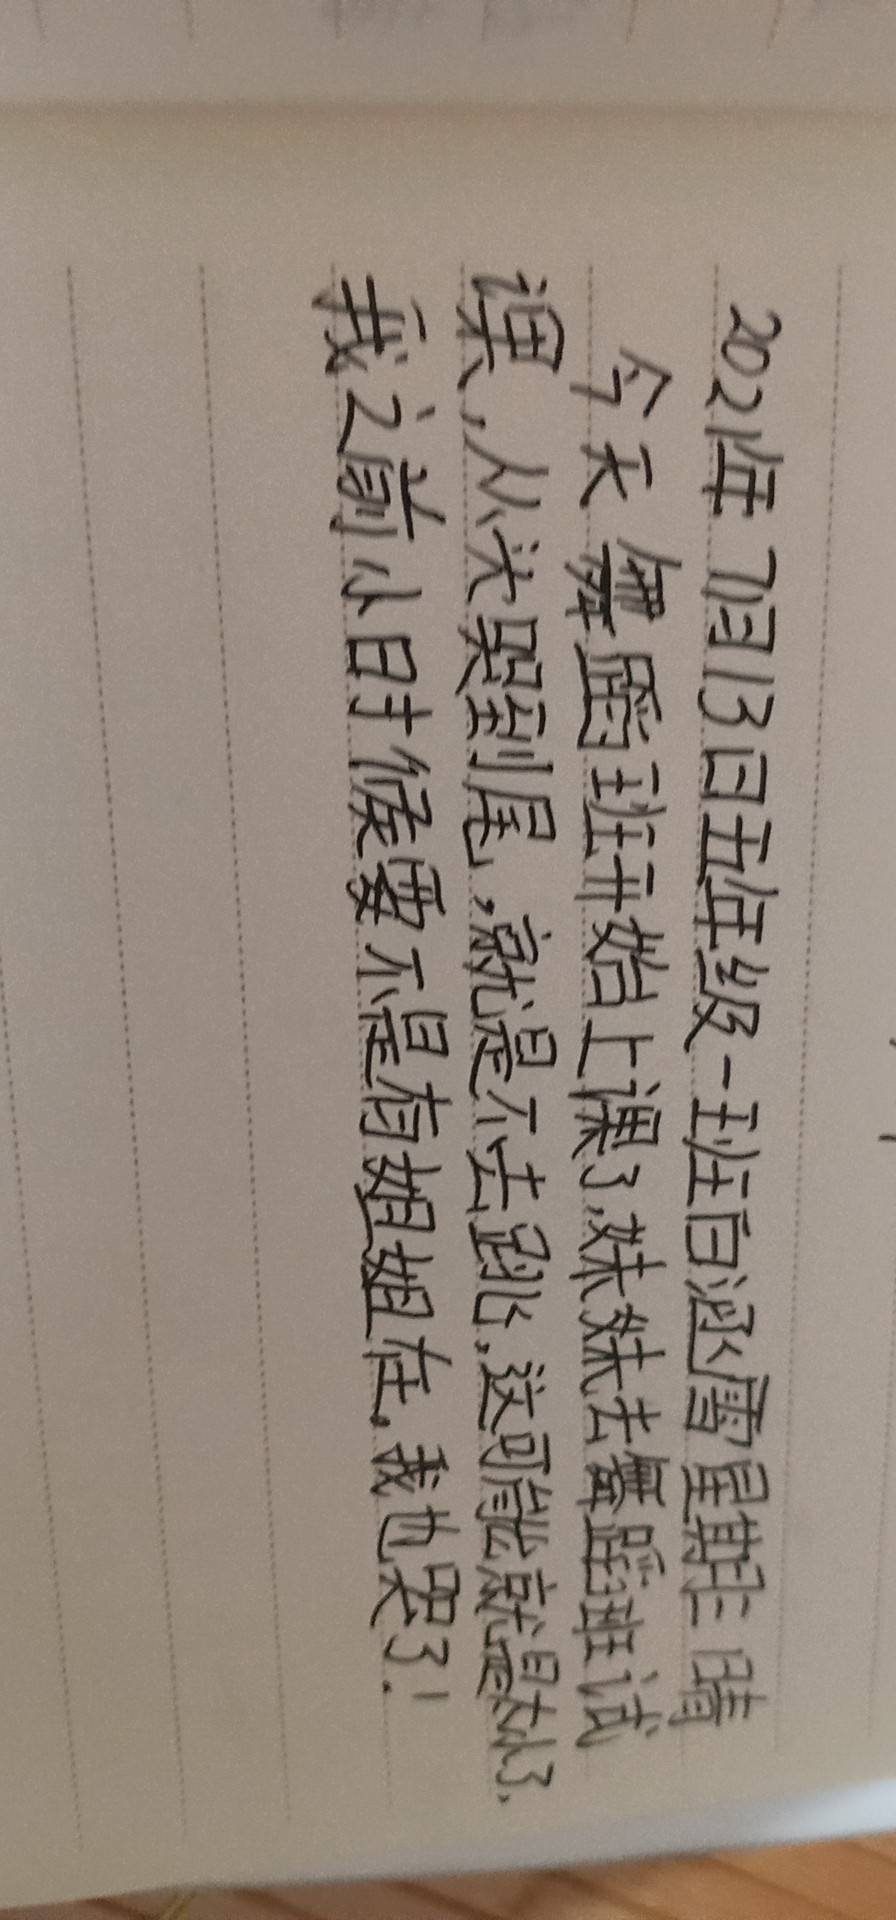 2021年7月13日五年级一班白涵雪星期二 晴
今天舞蹈班开始上课了,妹妹去舞蹈班试
课,从头哭到尾,就是不去跳,这可能就是太小了,
我之前小时候要不是有姐姐在,我也哭了!